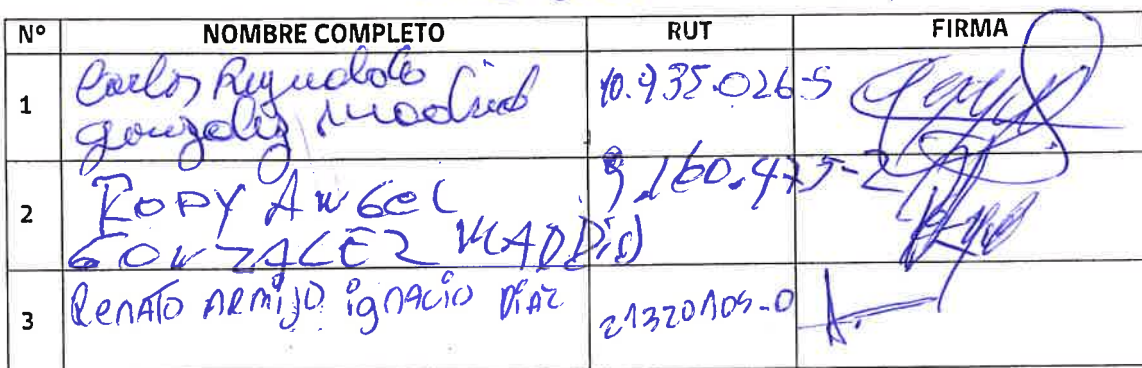 Nº NOMBRE COMPLETO RUT FIRMA
1 Carlos Reynaldo González Madrid 10.935.026-5
2 RODY ANGEL GONZALEZ MADRID 9.160.475-2
3 Renato ARMIJO ignacio DiAZ 21320105-0